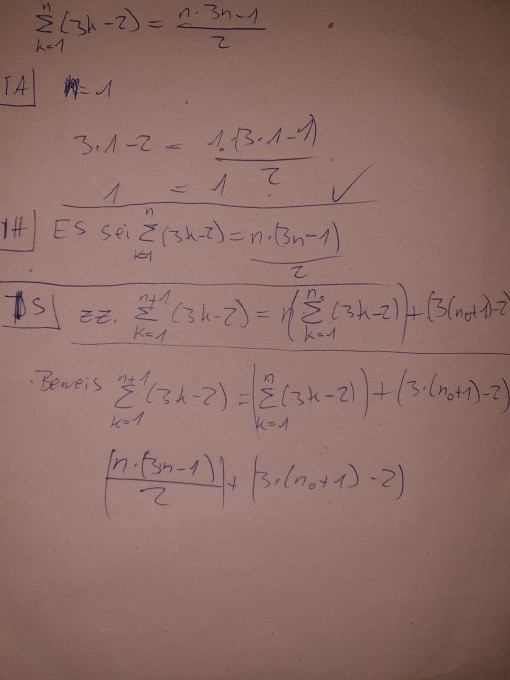 n∑k=1 (3k-2) = n·3n-1/2
IA n=1
3·1-2 = 1·(3·1-1)/2
1 = 1 ✓
IH ES sei n∑k=1 (3k-2) = n·(3n-1)/2
IS zz. n+1∑k=1 (3k-2) = n(n₀∑k=1 (3k-2)) + (3(n₀+1)-2
Beweis n+1∑k=1 (3k-2) = (n∑k=1 (3k-2)) + (3·(n₀+1)-2)
(n·(3n-1)/2) + (3·(n₀+1)-2)